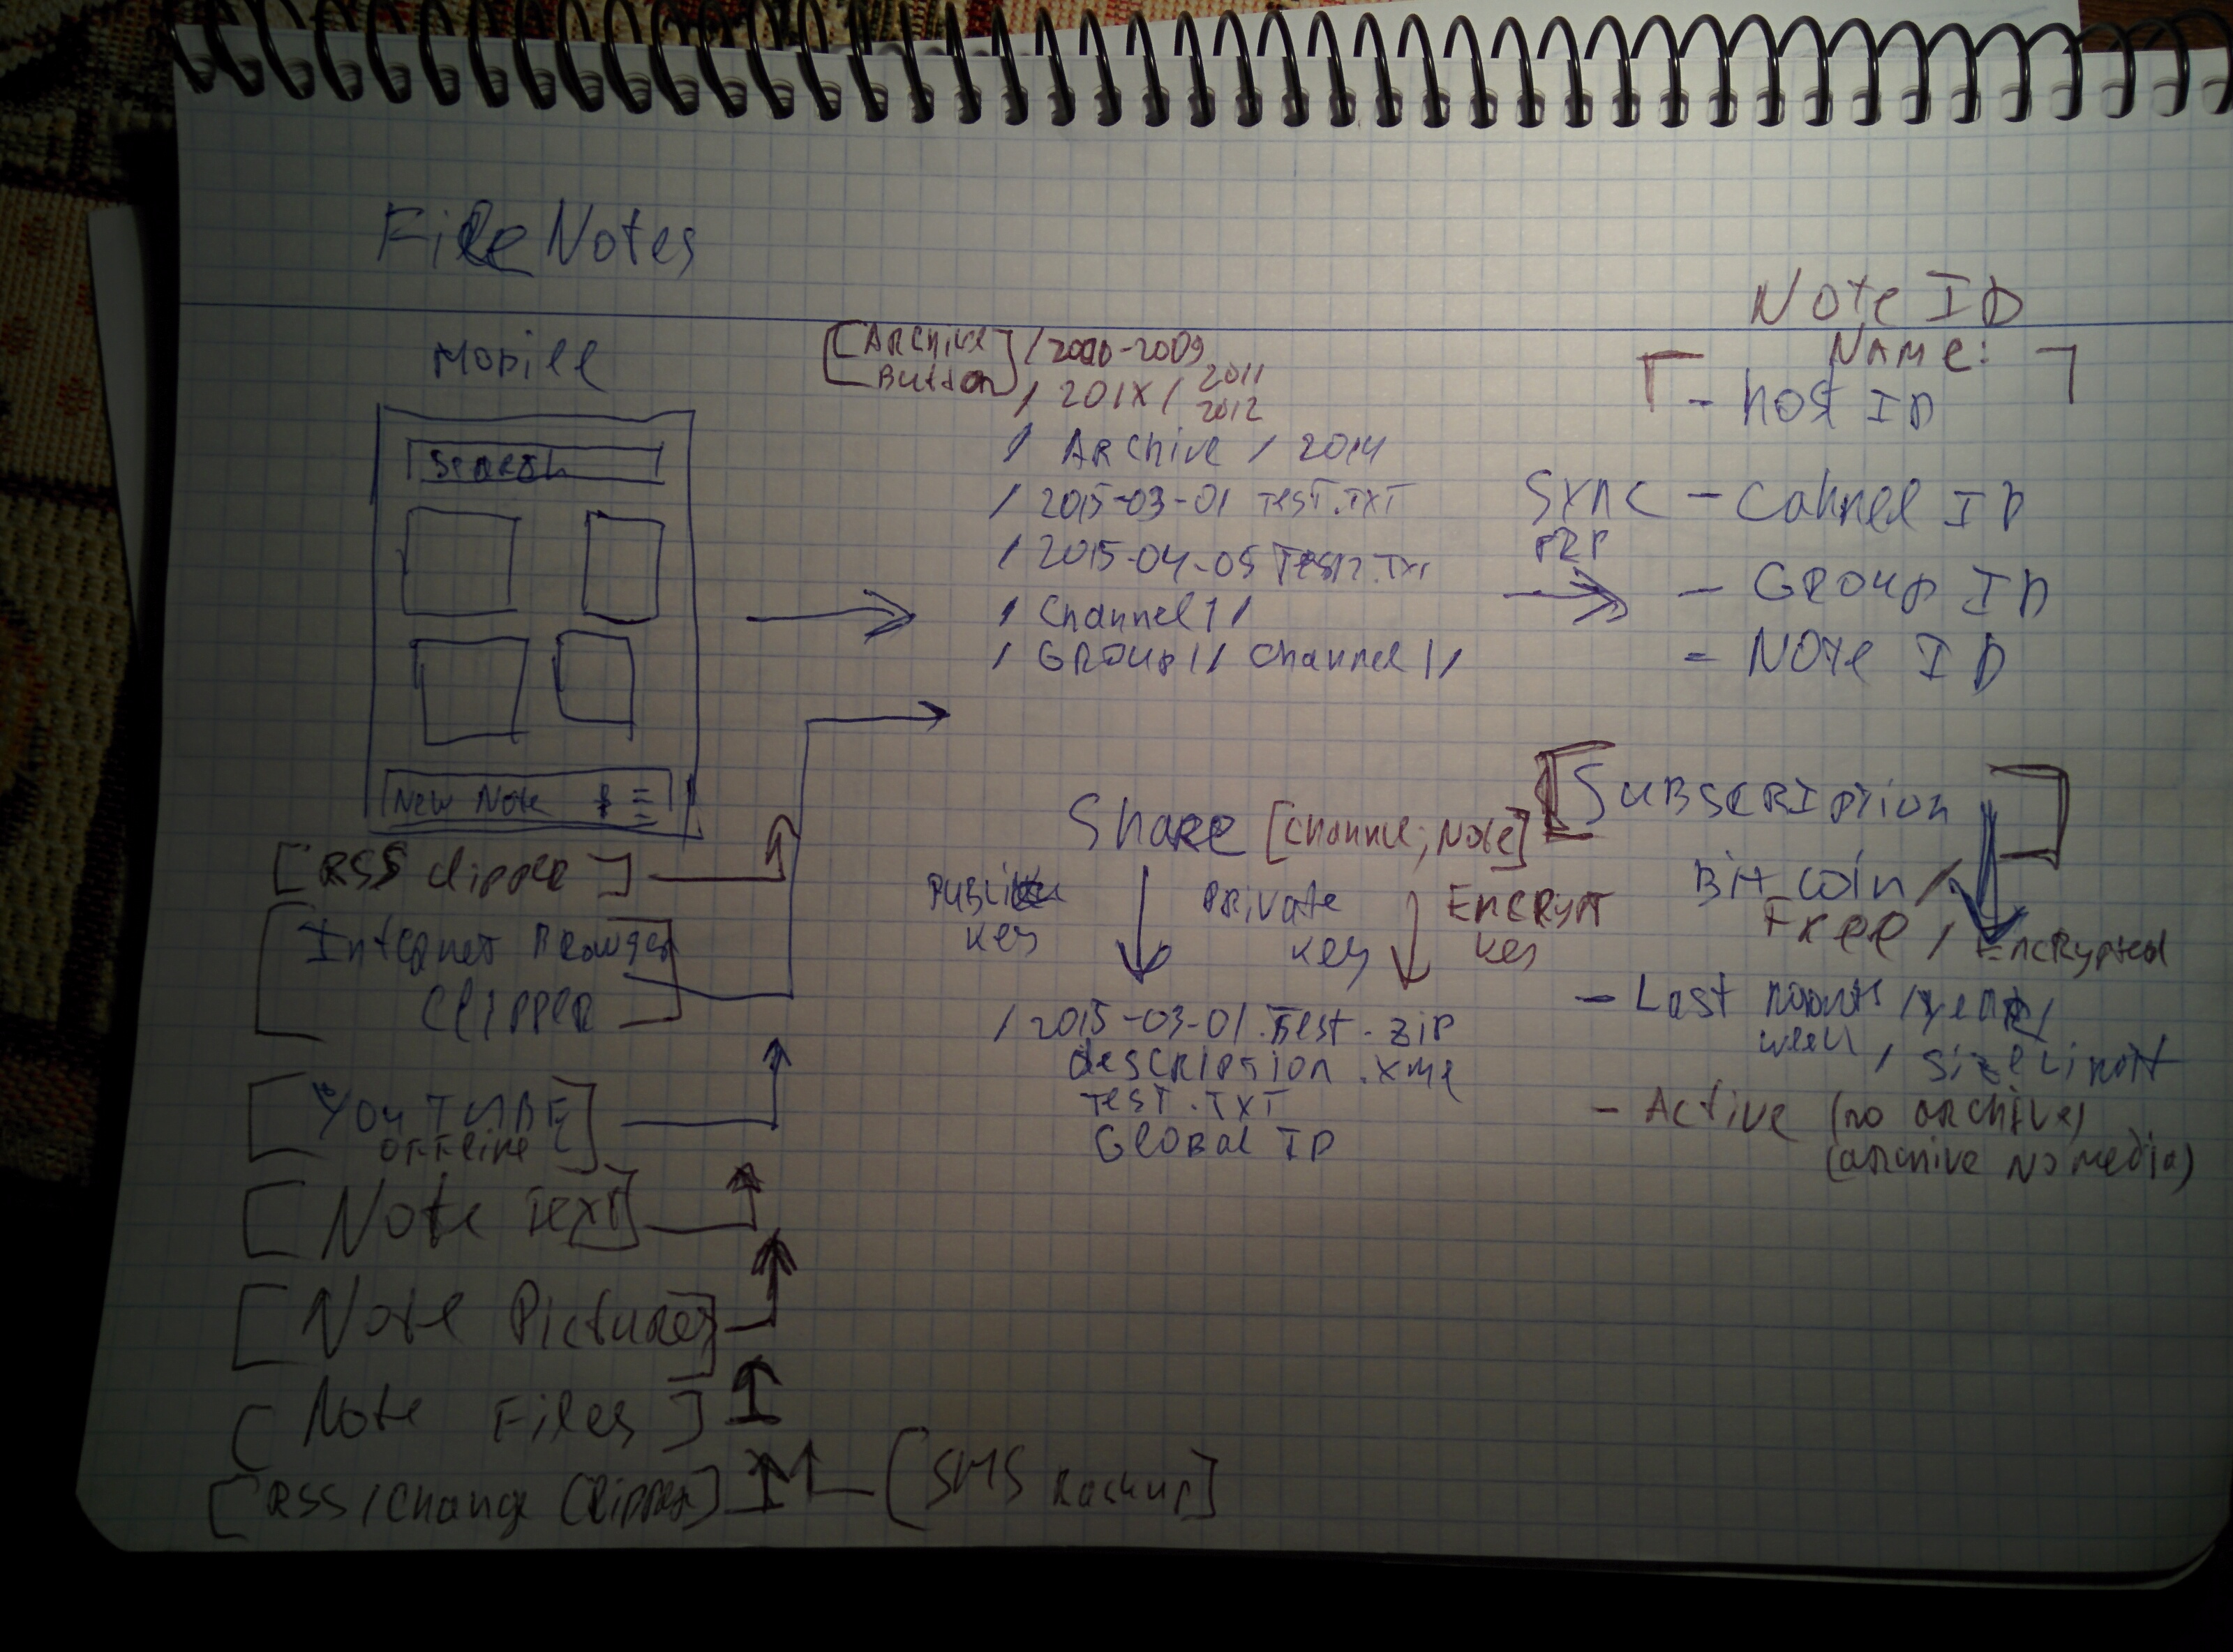 File Notes
Mobile
Search
New Note
[RSS Clipper]
[Internet Browser
Clipper]
[YouTUBE
OFFline]
[Note Text]
[Note Pictures]
[Note Files]
[RSS / Change Clipper]
[SMS Backup]
[Archive
Button]
/ 2000-2009
/ 201X / 2011
2012
/ Archive / 2014
/ 2015-03-01 Test.TXT
/ 2015-04-05 Test2.Txt
/ Channel 1 /
/ GROUP 1 / Channel 1 /
SYNC
P2P
Note ID
Name:
- host ID
- Cahnel ID
- GROUP ID
- NOTE ID
Share [Channel; Note]
Public
Key
Private
Key
Encrypt
Key
/ 2015-03-01.Test.zip
description.xml
TesT.TXT
Global ID
[Subscription]
Bit coin /
Free / Encrypted
- Last month / year /
week, Size Limit
- Active (no archive)
(archive no media)